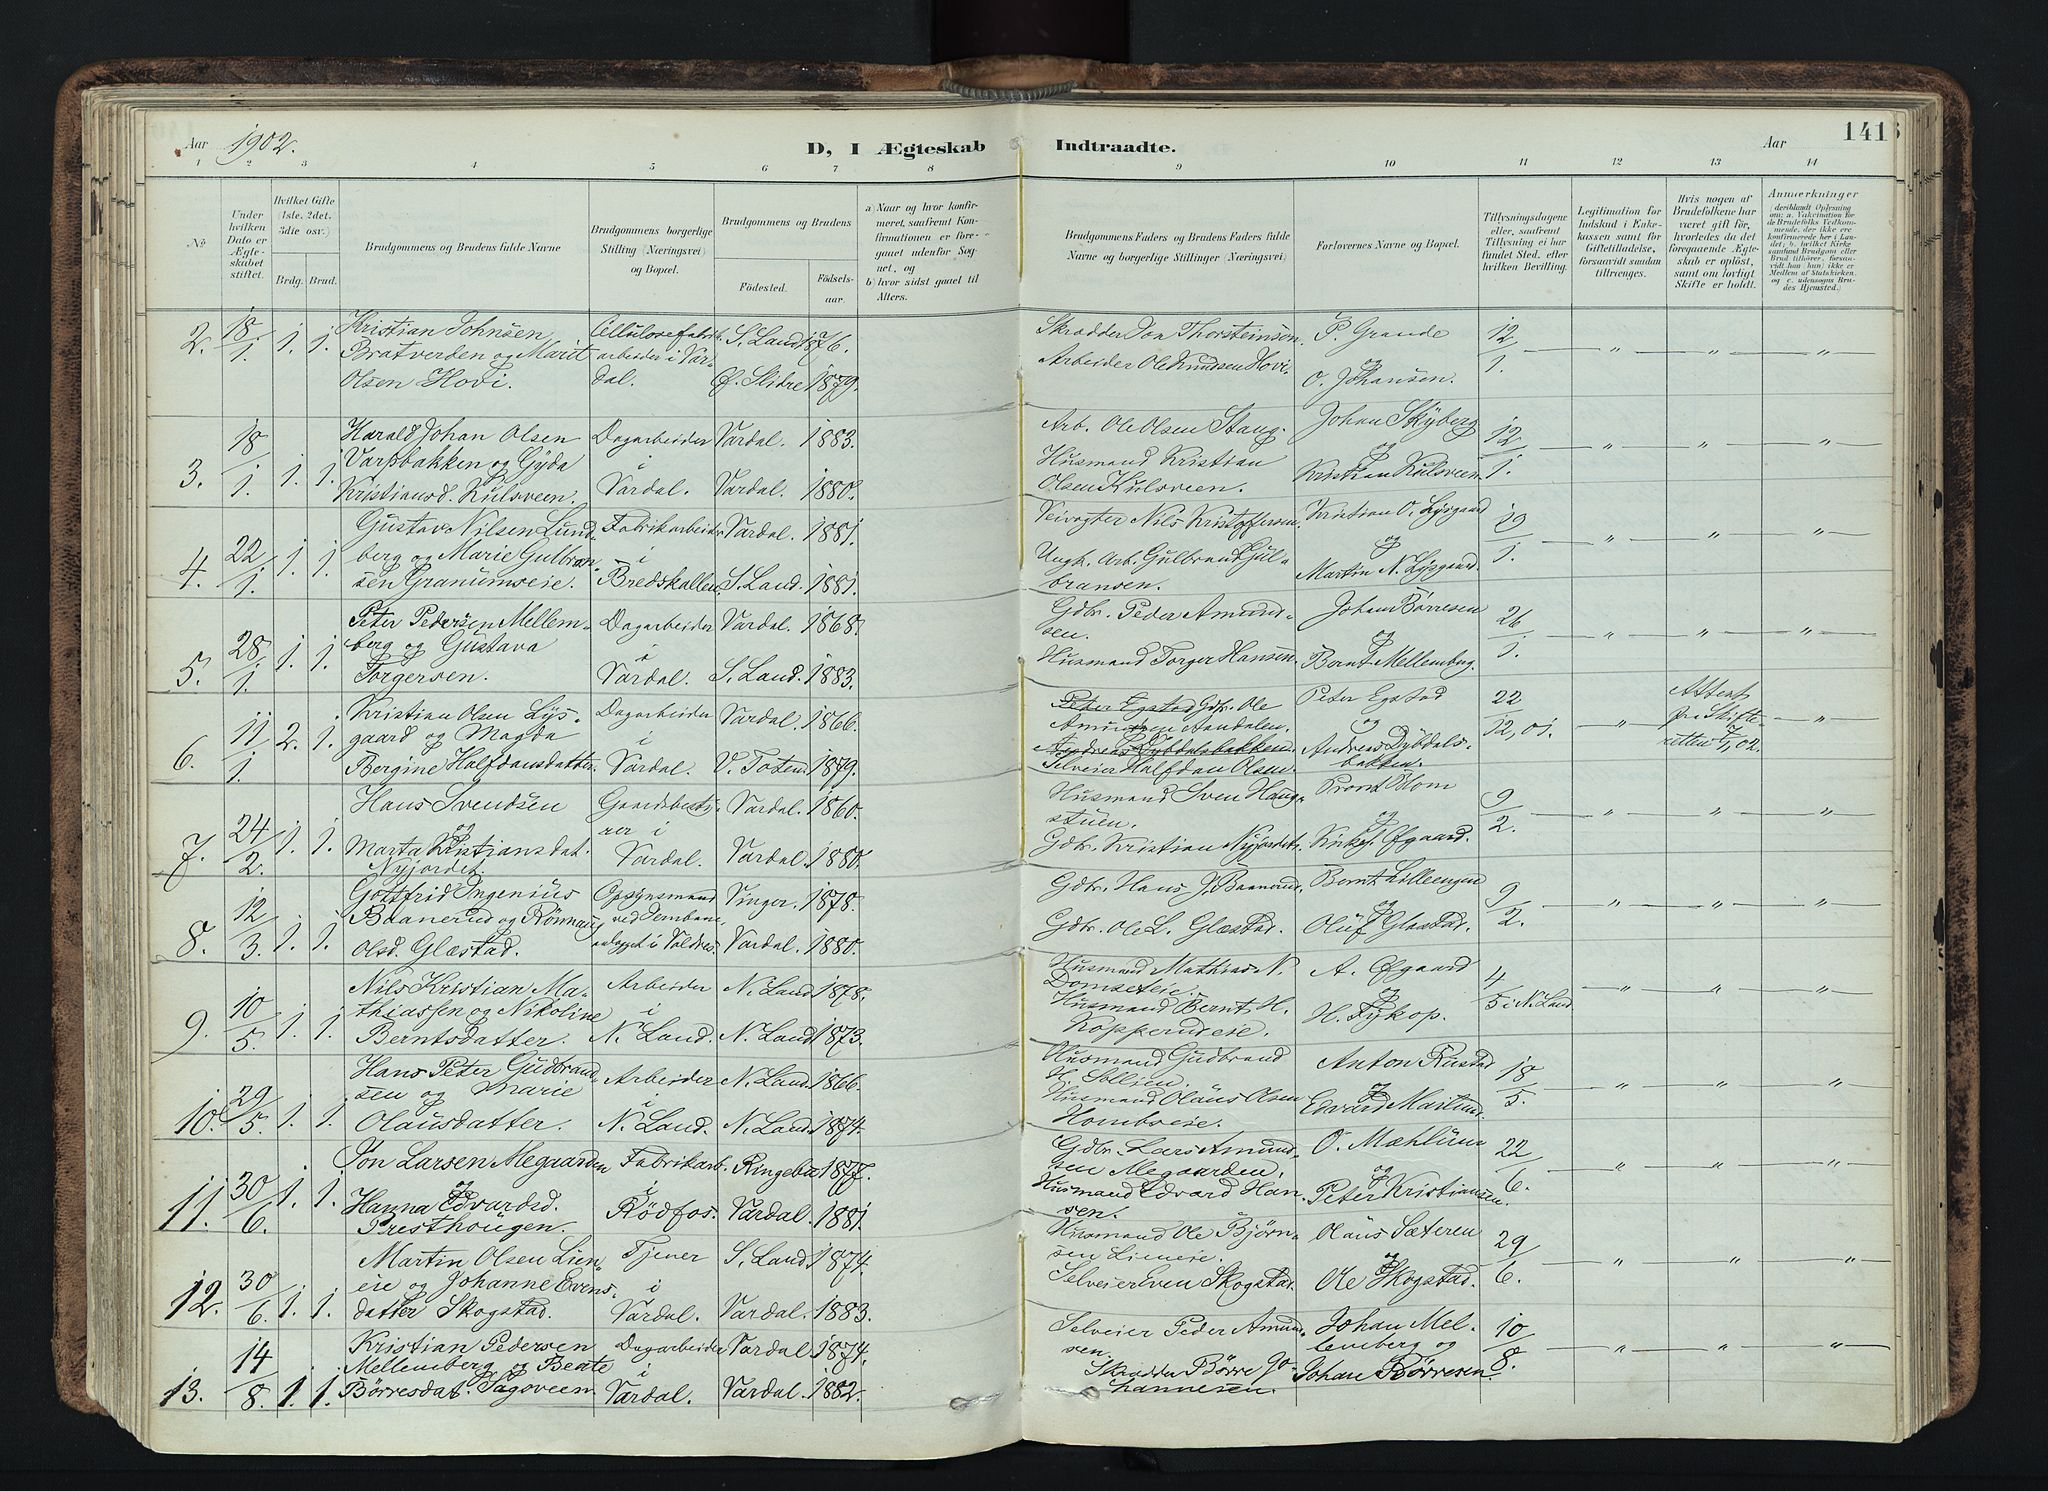 Aar 1902. D, I Ægteskab Indtraadte. Aar 141
1 2 3 4 5 6 7 8 9 10 11 12 13 14
No
Under hvilken Dato er Ægteskabet stiftet.
Hvilket Gifte (1ste, 2det, 3die osv.)
Brdg. Brud.
Brudgommens og Brudens fulde Navne
Brudgommens borgerlige Stilling (Næringsvei) og Bopæl.
Brudgommens og Brudens
Födested. Födselsaar.
a) Naar og hvor konfirmeret, saafremt Konfirmationen er foregaaet udenfor Sognet, og
b) hvor sidst gaaet til Alters.
Brudgommens Faders og Brudens Faders fulde Navne og borgerlige Stillinger (Næringsvei)
Forlovernes Navne og Bopæl.
Tillysningsdagene eller, saafremt Tillysning ei har fundet Sted, efter hvilken Bevilling.
Legitimation for Indskud i Enkekassen samt for Giftetilladelse, forsaavidt saadan tiltrænges.
Hvis nogen af Brudefolkene har været gift før, hvorledes da det foregaaende Ægteskab er opløst, samt om lovligt Skifte er holdt.
Anmerkninger
2. 18/1. 1. 1. Kristian Johnsen Bratverden og Marit Olsen Hovi. Cellulosefabrikarbeider i Vardal. S. Land 1876. Ø. Slidre 1879. Skrædder Jon Thorsteinsen. Arbeider Ole Knudsen Hovi. P. Grande og O. Johansen. 12/1. " " "
3. 18/1. 1. 1. Harald Johan Olsen Varpbakken og Gyda Kristiansd. Kulsveen. Dagarbeider i Vardal. Vardal. 1883. Vardal. 1880. Arb. Ole Olsen Stang. Husmand Kristian Olsen Kulsveen. Johan Skyberg og Kristian Kulsveen. 12/1. " " "
4. 22/1. 1. 1. Gustav Nilsen Lundberg og Marie Gulbransen Granumseie. Fabrikarbeider i Bredskallen. Vardal. 1881. S. Land. 1881. Veivogter Nils Kristoffersen. Ungk. Arb. Gulbrand Gulbransen. Kristian O. Lysgaard og Martin N. Lysgaard. 19/1. " " "
5. 28/1. 1. 1. Peter Pedersen Mellemberg og Gustava Torgersen. Dagarbeider i Vardal. Vardal. 1868. S. Land. 1883. Gdbr. Peder Amundsen. Husmand Torger Hansen. Johan Børresen og Bernt Mellemberg. 26/1. " " "
6. 11/1. 2. 1. Kristian Olsen Lysgaard og Magda Bergine Halfdansdatter. Dagarbeider i Vardal. Vardal. 1866. V. Toten. 1879. Peter Egstad Gdbr. Ole Aandalen. Selveier Halfdan Olsen. Peter Egstad og Andreas Dybdalsbakken. 22/12, 01. " Attest fra Skifteretten 7/1, 02. "
7. 24/2. 1. 1. Hans Svendsen og Marta Kristiansdat. Nyjordet. Gaardsbestyrer i Vardal. Vardal. 1860. Vardal. 1880. Husmand Sven Haugstuen. Gdbr. Kristian Nyjordet. Blom og Kirkesj. Øfgaard. 9/2. " " "
8. 12/3. 1. 1. Gottfrid Ingenius Baanerud og Rønnaug Olsd. Glæstad. Opsynsmand ved Jernbaneanlægget i Valdres. Vinger. 1878. Vardal. 1880. Gdbr. Hans J. Baanerud. Gdbr. Ole L. Glæstad. Bernt Lilleengen og Oluf Glæstad. 9/2. " " "
9. 10/5. 1. 1. Nils Kristian Mathiassen og Nikoline Berntsdatter. Arbeider i N. Land. N. Land 1878. N. Land 1873. Husmand Mathias N. Domseteie. Husmand Bernt H. Kopperudeie. A. Øfgaard og H. Fykop. 4/5 i N. Land. " " "
10. 29/5. 1. 1. Hans Peter Gudbrandsen og Marie Olausdatter. Arbeider i N. Land. N. Land 1866. N. Land. 1874. Husmand Gudbrand H. Sollien. Husmand Olaus Olsen Hombseie. Anton Rustad og Edvard Martins. 18/5. " " "
11. 30/6. 1. 1. Jon Larsen Megaarden og Hanna Edvardsd. Presthougen. Fabrikarb. i Rødfos. Ringebu 1877. Vardal. 1881. Gdbr. Lars Amundsen Megaarden. Husmand Edvard Hansen. O. Mæhlum og Peter Kristiansen. 22/6. " " "
12. 30/6. 1. 1. Martin Olsen Lieneie og Johanne Evensdatter Skogstad. Tjener i Vardal. S. Land. 1874. Vardal. 1883. Husmand Ole Bjørnsen Lieneie. Selveier Even Skogstad. Olaus Sæteren og Ole Skogstad. 29/6. " " "
13. 14/8. 1. 1. Kristian Pedersen Mellemberg og Beate Børresdat. Sagsveen. Dagarbeider i Vardal. Vardal. 1874. Vardal. 1882. Selveier Peder Amundsen. Skrædder Børre Johannesen. Johan Mellemberg og Johan Børresen. 10/8. " " "